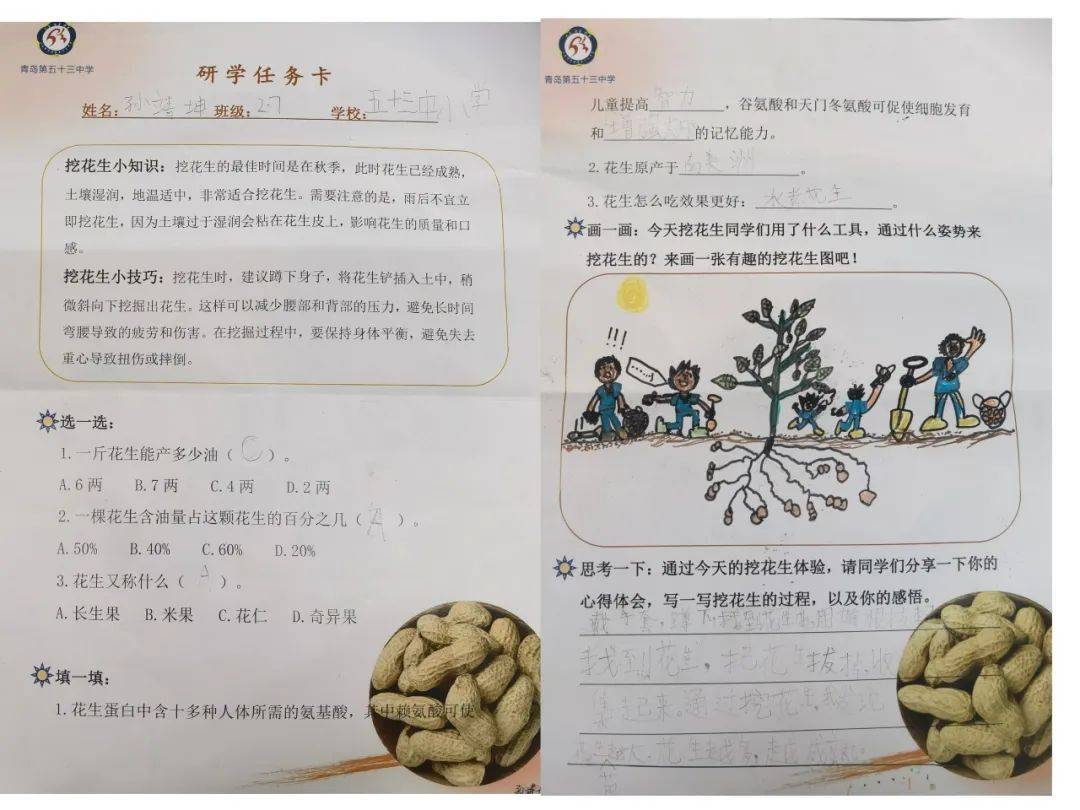 青岛第五十三中学
研学任务卡
姓名：孙靖坤 班级：2.7 学校：五十三中小学
挖花生小知识：挖花生的最佳时间是在秋季，此时花生已经成熟，
土壤湿润，地温适中，非常适合挖花生。需要注意的是，雨后不宜立
即挖花生，因为土壤过于湿润会粘在花生皮上，影响花生的质量和口
感。
挖花生小技巧：挖花生时，建议蹲下身子，将花生铲插入土中，稍
微斜向下挖掘出花生。这样可以减少腰部和背部的压力，避免长时间
弯腰导致的疲劳和伤害。在挖掘过程中，要保持身体平衡，避免失去
重心导致扭伤或摔倒。
选一选：
1.一斤花生能产多少油（ C ）。
A.6两 B.7两 C.4两 D.2两
2.一棵花生含油量占这颗花生的百分之几（ A ）。
A.50% B.40% C.60% D.20%
3.花生又称什么（ A ）。
A.长生果 B.米果 C.花仁 D.奇异果
填一填：
1.花生蛋白中含十多种人体所需的氨基酸，其中赖氨酸可使
青岛第五十三中学
儿童提高智力，谷氨酸和天门冬氨酸可促使细胞发育
和增强大脑的记忆能力。
2.花生原产于南美洲。
3.花生怎么吃效果更好：水煮花生。
画一画：今天挖花生同学们用了什么工具，通过什么姿势来
挖花生的？来画一张有趣的挖花生图吧！
!!!
思考一下：通过今天的挖花生体验，请同学们分享一下你的
心得体会，写一写挖花生的过程，以及你的感悟。
戴手套，蹲下找到花生苗，用
找到花生，把花生拔出，收
集起来。通过挖花生，我发现
人，花生